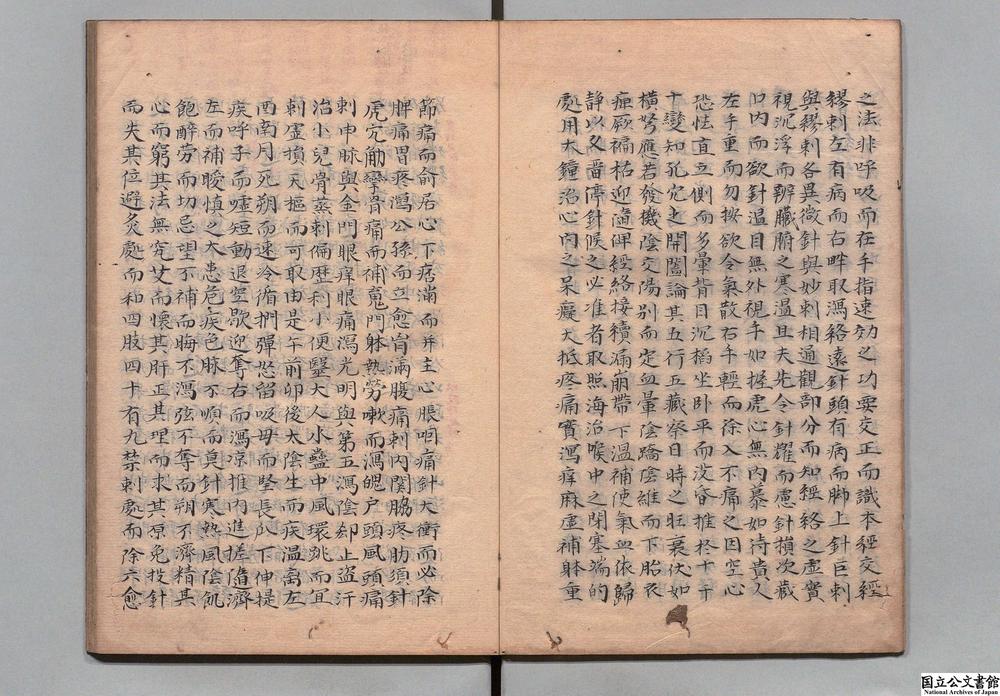 之法非呼吸而在手指速効之功要交正而識本經交經
繆刺左有病而右畔取瀉絡遠針頭有病而脚上針巨刺
與繆刺各異微針與妙刺相通觀部分而知經絡之虛實
視沉浮而辨臟腑之寒温且夫先令針耀而慮針損次藏
口内而欲針温目無外視手如握虎心無内慕如待貴人
左手重而勿按欲令氣散右手輕而徐入不痛之因空心
恐怯直立側而多暈背目沉掐坐卧平而没昏推於十干
十變知孔穴之開闔論其五行五藏察日時之旺衰伏如
横弩應若發機陰交陽别而定血暈陰蹻陰維而下胎衣
痺厥褊枯迎隨俾經絡接續漏崩帶下温補使氣血依歸
静以久畱停針候之必准者取照海治喉中之閉塞端的
處用大鐘治心内之呆癡大抵疼痛實瀉痒麻虛補躰重
節痛而俞居心下痞滿而井主心脹咽痛針大衝而必除
脾痛胃疼瀉公孫而立愈胷滿腹痛刺内関脇疼肋須針
虎穴觔攣骨痛而補䰟門躰熱勞嗽而瀉魄户頭風頭痛
刺申脉與金門眼痒眼痛瀉光明與第五瀉陰郄上盗汗
治小兒骨蒸刺偏歴利小便醫大人水蠱中風環跳而宜
刺虛損天樞而可取由是午前卯後大陰生而疾温离左
酉南月死朔而速冷循捫彈怒留吸母而堅長爪下伸提
疾呼子而嘘短動退空歇迎奪右而瀉凉推内進搓隨濟
左而補暖慎之大患危疾色脉不順而莫針寒熱風陰飢
飽醉勞而切忌望不補而晦不瀉弦不奪而朔不濟精其
心而窮其法無究艾而懷其肝正其理而求其原免投針
而失其位避灸處而和四肢四十有九禁刺處而除六愈
国立公文書館
National Archives of Japan